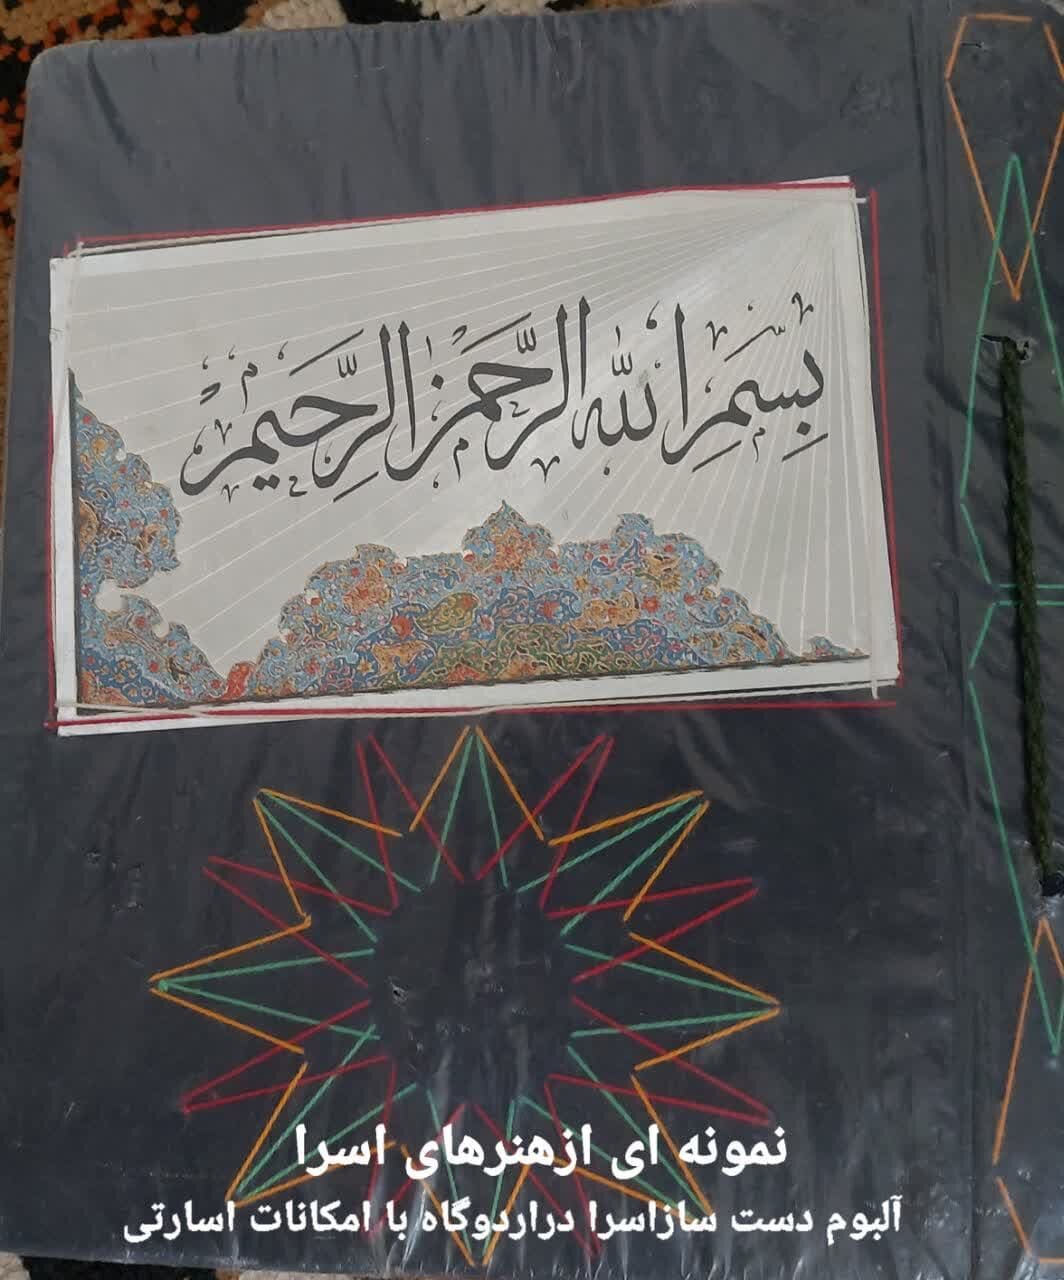 بِسْمِ اللهِ الرَّحْمٰنِ الرَّحِيمِ
نمونه ای ازهنرهای اسرا
آلبوم دست سازاسرا دراردوگاه با امکانات اسارتی